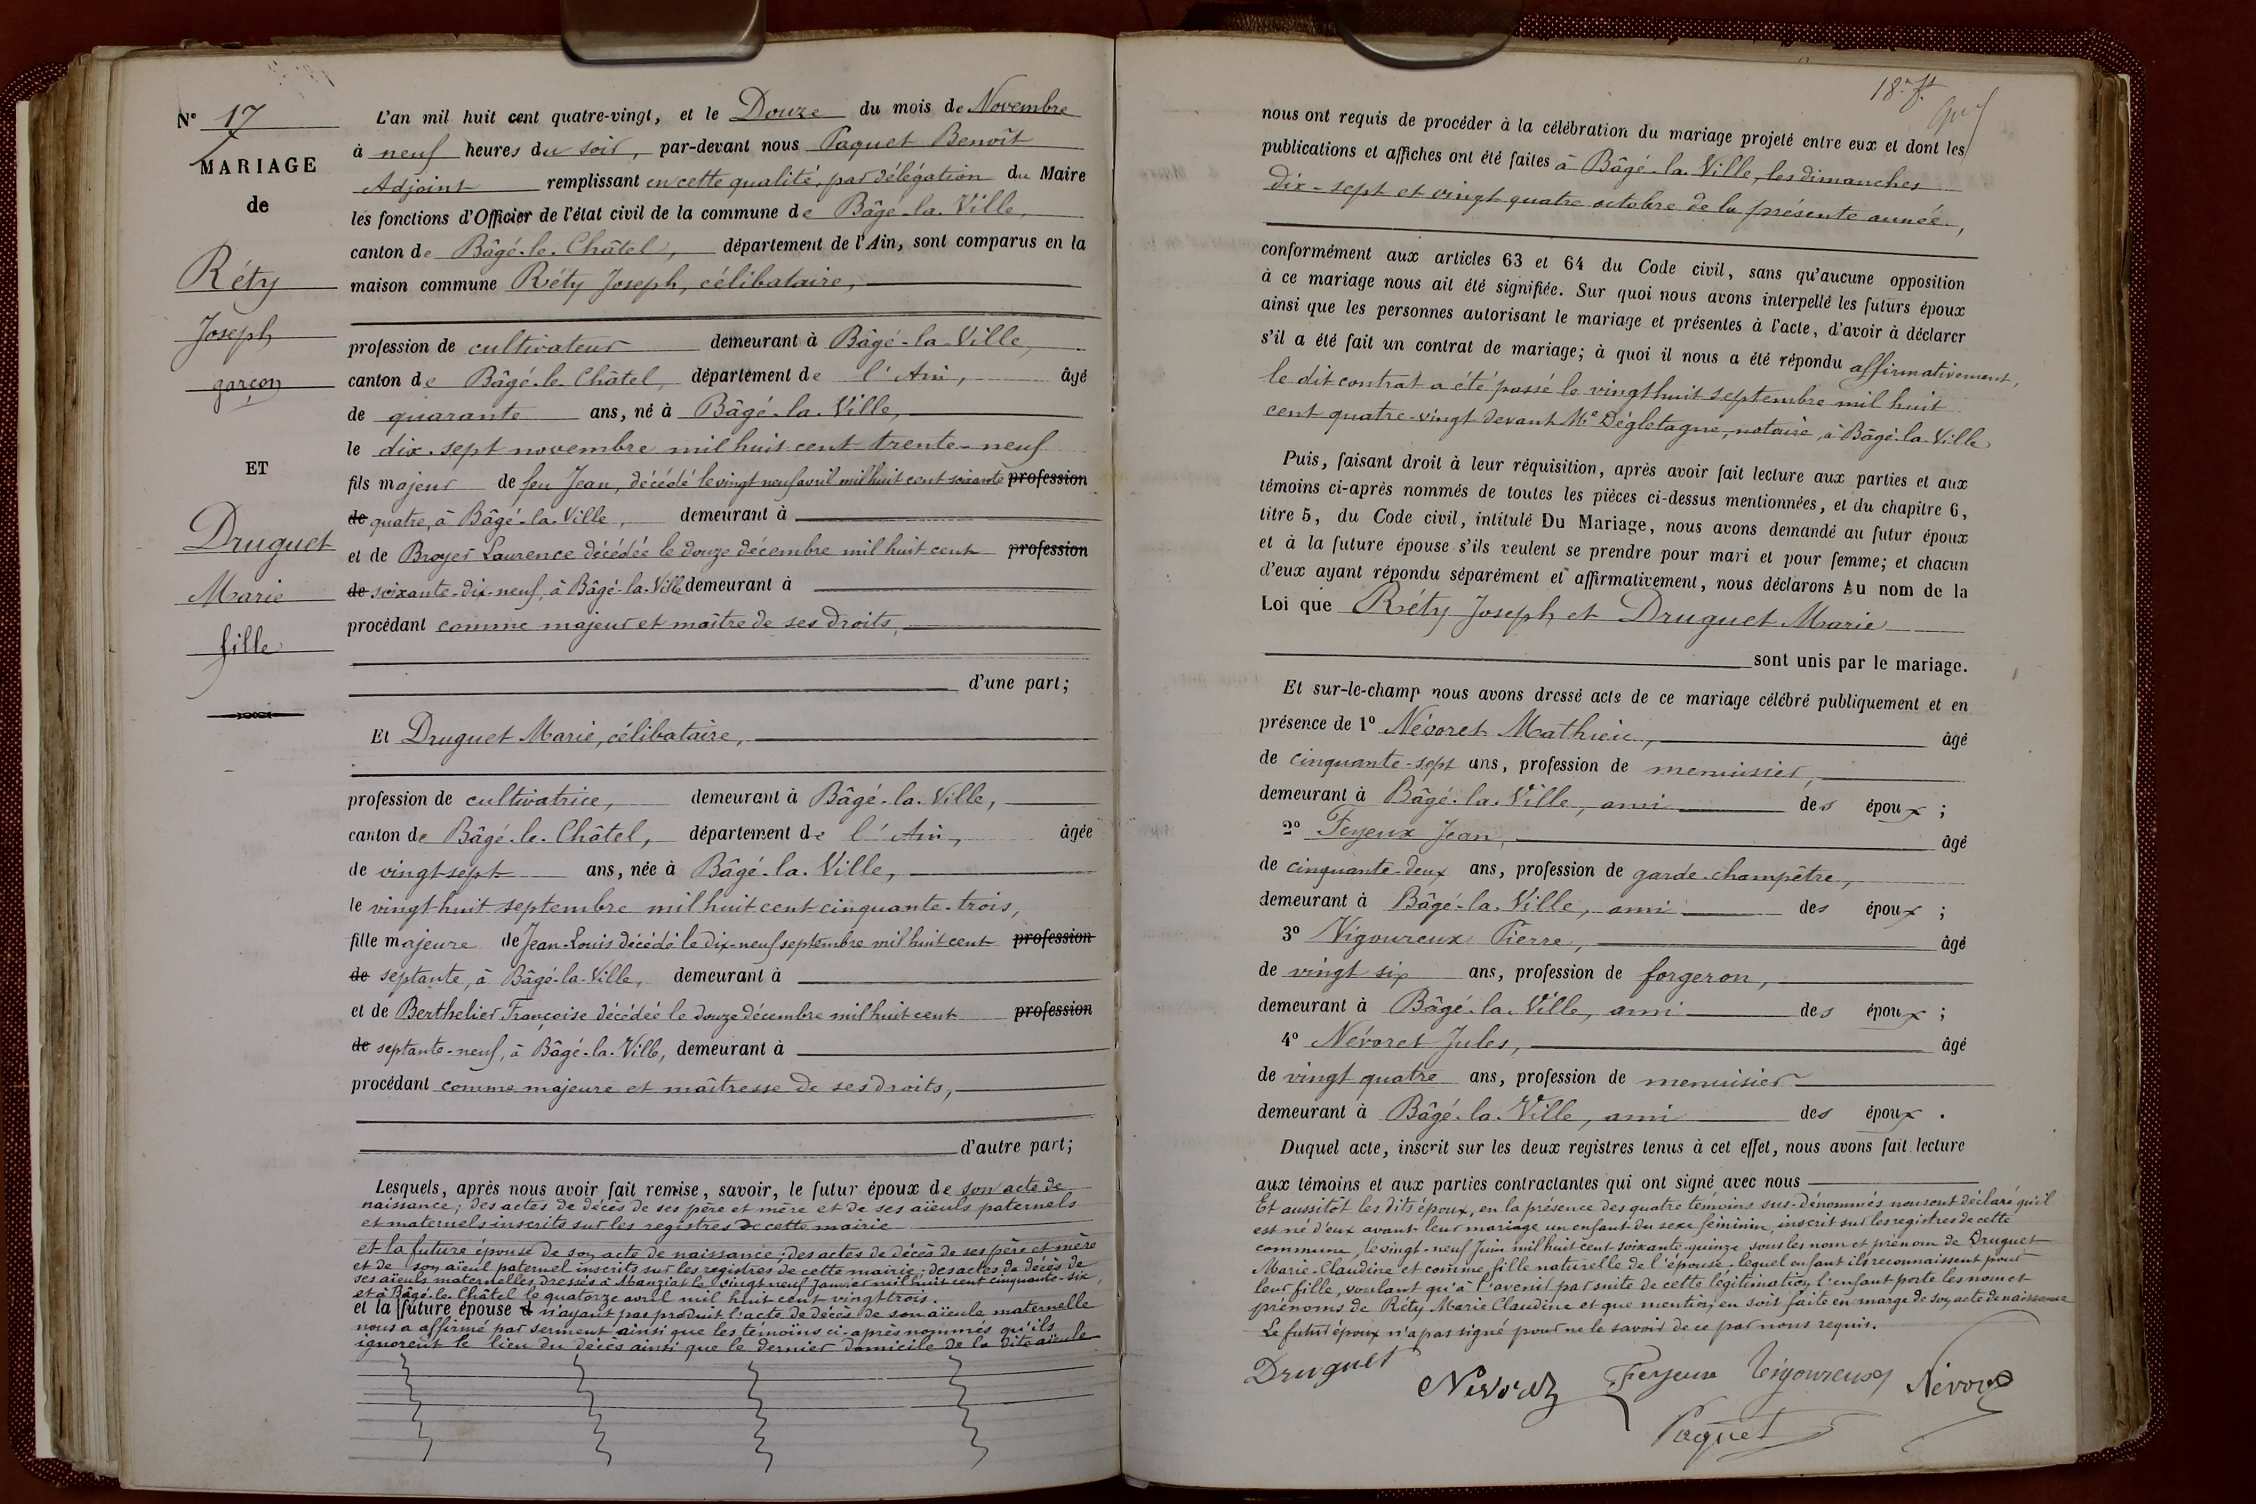 N° 17
MARIAGE
de
Réty
Joseph
garçon
ET
Druguet
Marie
fille
L'an mil huit cent quatre-vingt, et le Douze du mois de Novembre
à neuf heures du soir, par-devant nous Paquet Benoît
Adjoint remplissant en cette qualité, par délégation du Maire
les fonctions d'Officier de l'état civil de la commune de Bâgé-la-Ville,
canton de Bâgé-le-Châtel, département de l'Ain, sont comparus en la
maison commune Réty Joseph, célibataire,
profession de cultivateur demeurant à Bâgé-la-Ville,
canton de Bâgé-le-Châtel, département de l'Ain, âgé
de quarante ans, né à Bâgé-la-Ville,
le dix-sept novembre mil huit cent trente-neuf
fils majeur de feu Jean, décédé le vingt neuf avril mil huit cent soixante profession
de quatre, à Bâgé-la-Ville, demeurant à
et de Broyer Laurence décédée le douze décembre mil huit cent profession
de soixante-dix-neuf, à Bâgé-la-Ville demeurant à
procédant comme majeur et maître de ses droits,
d'une part;
Et Druguet Marie, célibataire,
profession de cultivatrice, demeurant à Bâgé-la-Ville,
canton de Bâgé-le-Châtel, département de l'Ain, âgée
de vingt-sept ans, née à Bâgé-la-Ville,
le vingt-huit septembre mil huit cent cinquante-trois,
fille majeure de Jean-Louis décédé le dix-neuf septembre mil huit cent profession
de septante, à Bâgé-la-Ville, demeurant à
et de Berthelier Françoise décédée le douze décembre mil huit cent profession
de septante-neuf, à Bâgé-la-Ville, demeurant à
procédant comme majeure et maîtresse de ses droits,
d'autre part;
Lesquels, après nous avoir fait remise, savoir, le futur époux de son acte de
naissance; des actes de décès de ses père et mère et de ses aïeuls paternels
et maternels inscrits sur les registres de cette mairie
et la future épouse de son acte de naissance; des actes de décès de ses père et mère
et de son aïeul paternel inscrits sur les registres de cette mairie; des actes de décès de
ses aïeuls maternelles dressés à Manziat le vingt neuf Janvier mil huit cent cinquante-six,
et à Bâgé-le-Châtel le quatorze avril mil huit cent vingt trois.
et la future épouse d n'ayant pas produit l'acte de décès de son aïeule maternelle
nous a affirmé par serment ainsi que les témoins ci-après nommés qu'ils
ignorent le lieu du décès ainsi que le dernier domicile de la dite aïeule
18e ft
nous ont requis de procéder à la célébration du mariage projeté entre eux et dont les
publications et affiches ont été faites à Bâgé-la-Ville, les dimanches
dix-sept et vingt quatre octobre de la présente année,
conformément aux articles 63 et 64 du Code civil, sans qu'aucune opposition
à ce mariage nous ait été signifiée. Sur quoi nous avons interpellé les futurs époux
ainsi que les personnes autorisant le mariage et présentes à l'acte, d'avoir à déclarer
s'il a été fait un contrat de mariage; à quoi il nous a été répondu affirmativement,
le dit contrat a été passé le vingt huit septembre mil huit
cent quatre-vingt devant Me Dégletagne, notaire, à Bâgé-la-Ville
Puis, faisant droit à leur réquisition, après avoir fait lecture aux parties et aux
témoins ci-après nommés de toutes les pièces ci-dessus mentionnées, et du chapitre 6,
titre 5, du Code civil, intitulé Du Mariage, nous avons demandé au futur époux
et à la future épouse s'ils veulent se prendre pour mari et pour femme; et chacun
d'eux ayant répondu séparément et affirmativement, nous déclarons Au nom de la
Loi que Réty Joseph et Druguet Marie
sont unis par le mariage.
Et sur-le-champ nous avons dressé acte de ce mariage célébré publiquement et en
présence de 1° Névoret Mathieu, âgé
de cinquante-sept ans, profession de menuisier,
demeurant à Bâgé-la-Ville, ami des époux;
2° Feyeux Jean, âgé
de cinquante-deux ans, profession de garde-champêtre,
demeurant à Bâgé-la-Ville, ami des époux;
3° Vigoureux Pierre, âgé
de vingt six ans, profession de forgeron,
demeurant à Bâgé-la-Ville, ami des époux;
4° Névoret Jules, âgé
de vingt quatre ans, profession de menuisier
demeurant à Bâgé-la-Ville, ami des époux.
Duquel acte, inscrit sur les deux registres tenus à cet effet, nous avons fait lecture
aux témoins et aux parties contractantes qui ont signé avec nous
Et aussitôt les dits époux, en la présence des quatre témoins sus-dénommés nous ont déclaré qu'il
est né d'eux avant leur mariage un enfant du sexe féminin, inscrit sur les registres de cette
commune, le vingt-neuf Juin mil huit cent soixante-quinze sous les nom et prénom de Druguet
Marie-Claudine et comme fille naturelle de l'épouse. lequel enfant ils reconnaissent pour
leur fille, voulant qu'à l'avenir par suite de cette légitimation l'enfant porte les nom et
prénoms de Réty Marie Claudine et que mention en soit faite en marge de son acte de naissance
Le futur époux n'a pas signé pour ne le savoir de ce par nous requis.
Druguet Nevoret Feyeux Vigoureux Névoret
Paquet